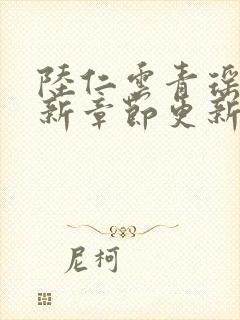 陸仁雲青瑤
新章節更新
尼柯